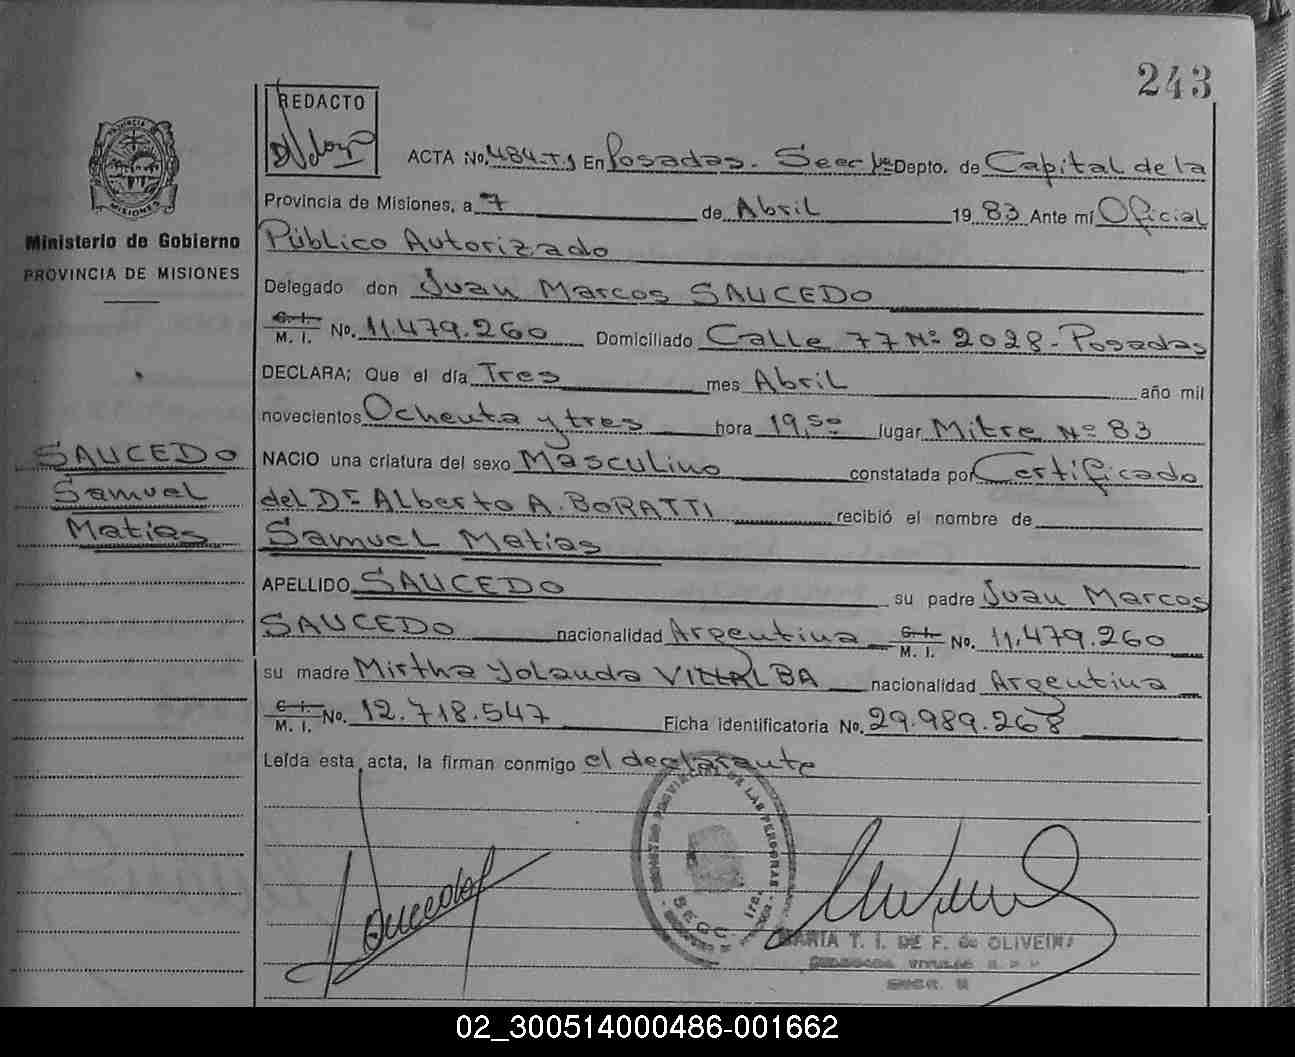 243
REDACTO
ACTA No. 484-T.1 En Posadas. Secc 1ra Depto. de Capital de la
Provincia de Misiones, a 7 de Abril 1983 Ante mí Oficial
Público Autorizado
Delegado don Juan Marcos SAUCEDO
C. I. M. I. No. 11.479.260 Domiciliado Calle 77 Nº 2028 - Posadas
DECLARA; Que el día Tres mes Abril año mil
novecientos Ochenta y tres hora 19,50 lugar Mitre Nº 83
NACIO una criatura del sexo Masculino constatada por Certificado
del Dr Alberto A. BORATTI recibió el nombre de
Samuel Matias
APELLIDO SAUCEDO su padre Juan Marcos
SAUCEDO nacionalidad Argentina C. I. M. I. No. 11.479.260
su madre Mirtha Yolanda VILLALBA nacionalidad Argentina
C. I. M. I. No. 12.718.547 Ficha identificatoria No. 29.989.268
Leída esta acta, la firman conmigo el declarante
PROVINCIA DE
MISIONES
Ministerio de Gobierno
PROVINCIA DE MISIONES
SAUCEDO
Samuel
Matias
Saucedo
DE LAS PERSONAS
SECC. 1ra.
MARIA T. I. DE F. de OLIVEIRA
02_300514000486-001662